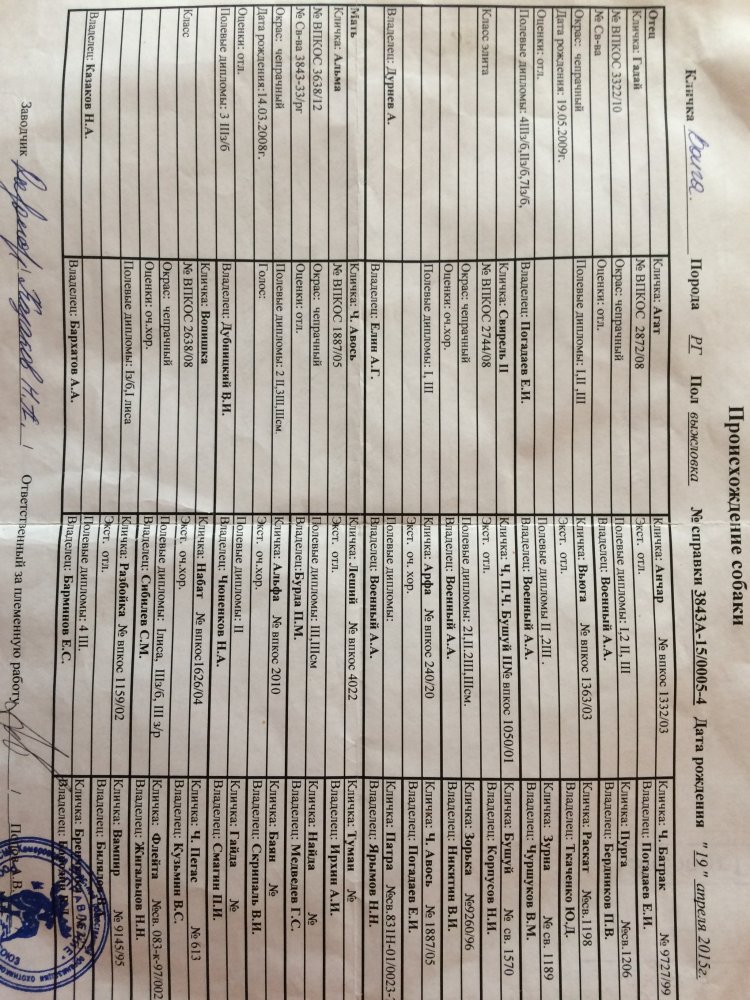 Происхождение собаки
Кличка Волга Порода РГ Пол выжловка № справки 3843А-15/0005-4 Дата рождения "19" апреля 2015г.
Отец
Кличка: Гадай
№ ВПКОС 3322/10
№ Св-ва
Окрас: чепрачный
Дата рождения: 19.05.2009г.
Оценки: отл.
Полевые дипломы: 4IIз/б,IIз/б,7Iз/б,
Класс элита
Владелец: Дурнев А.
Мать
Кличка: Альма
№ ВПКОС 3638/12
№ Св-ва 3843-33/рг
Окрас: чепрачный
Дата рождения:14.03.2008г.
Оценки: отл.
Полевые дипломы: 3 IIIз/б
Класс
Владелец: Казаков Н.А.
Кличка: Агат
№ ВПКОС 2872/08
Окрас: чепрачный
Оценки: отл.
Полевые дипломы: I,II ,III
Владелец: Погадаев Е.И.
Кличка: Свирель II
№ ВПКОС 2744/08
Окрас: чепрачный
Оценки: оч.хор.
Полевые дипломы: I, III
Владелец: Елин А.Г.
Кличка: Ч. Авось
№ ВПКОС 1887/05
Окрас: чепрачный
Оценки: отл.
Полевые дипломы: 2 II,3III,IIIсм
Голос:
Владелец: Дубницкий В.И.
Кличка: Вопишка
№ ВПКОС 2638/08
Окрас: чепрачный
Оценки: оч.хор.
Полевые дипломы: Iз/б,I лиса
Владелец: Бархатов А.А.
Кличка: Анчар № впкос 1332/03
Экст. отл.
Полевые дипломы: I,2 II, III
Владелец: Военный А.А.
Кличка: Вьюга № впкос 1363/03
Экст. отл.
Полевые дипломы II ,2III .
Владелец: Военный А.А.
Кличка: Ч, П.Ч. Бушуй II№ впкос 1050/01
Экст. отл.
Полевые дипломы: 2I,II.2III,IIIсм.
Владелец: Военный А.А.
Кличка: Арфа № впкос 240/20
Экст. оч. хор.
Полевые дипломы:
Владелец: Военный А.А.
Кличка: Леший № впкос 4022
Экст. отл.
Полевые дипломы: III,IIIсм
Владелец:Бурда П.М.
Кличка: Альфа № впкос 2010
Экст. оч.хор.
Полевые дипломы: II
Владелец: Чюненков Н.А.
Кличка: Набат № впкос1626/04
Экст. оч.хор.
Полевые дипломы: Iлиса, IIIз/б, III з/р
Владелец: Сибилев С.М.
Кличка: Разбойка № впкос 1159/02
Экст. отл.
Полевые дипломы: 4 III.
Владелец: Барминов Е.С.
Кличка: Ч. Батрак № 9727/99
Владелец: Погадаев Е.И.
Кличка: Пурга №св.1206
Владелец: Бердников П.В.
Кличка: Раскат №св.1198
Владелец: Ткаченко Ю.Д.
Кличка: Зурна № св. 1189
Владелец: Чуршуков В.М.
Кличка: Бушуй № св. 1570
Владелец: Корпусов Н.И.
Кличка: Зорька №9260/96
Владелец: Никитин В.И.
Кличка: Ч. Авось № 1887/05
Владелец: Погадаев Е.И.
Кличка: Патра №св.831Н-01/0023-
Владелец: Ярымов Н.Н.
Кличка: Туман №
Владелец: Ирхин А.И.
Кличка: Найда №
Владелец: Медведев Г.С.
Кличка: Баян №
Владелец: Скрипаль В.И.
Кличка: Гайда №
Владелец: Смагин П.И.
Кличка: Ч. Пегас № 613
Владелец: Кузьмин В.С.
Кличка: Флейта №св. 083-к-97/002
Владелец: Жигальцов Н.Н.
Кличка: Вампир № 9145/95
Владелец: Билялов
Кличка:
Владелец:
Заводчик / Казаков Н.А. / Ответственный за племенную работу / В.